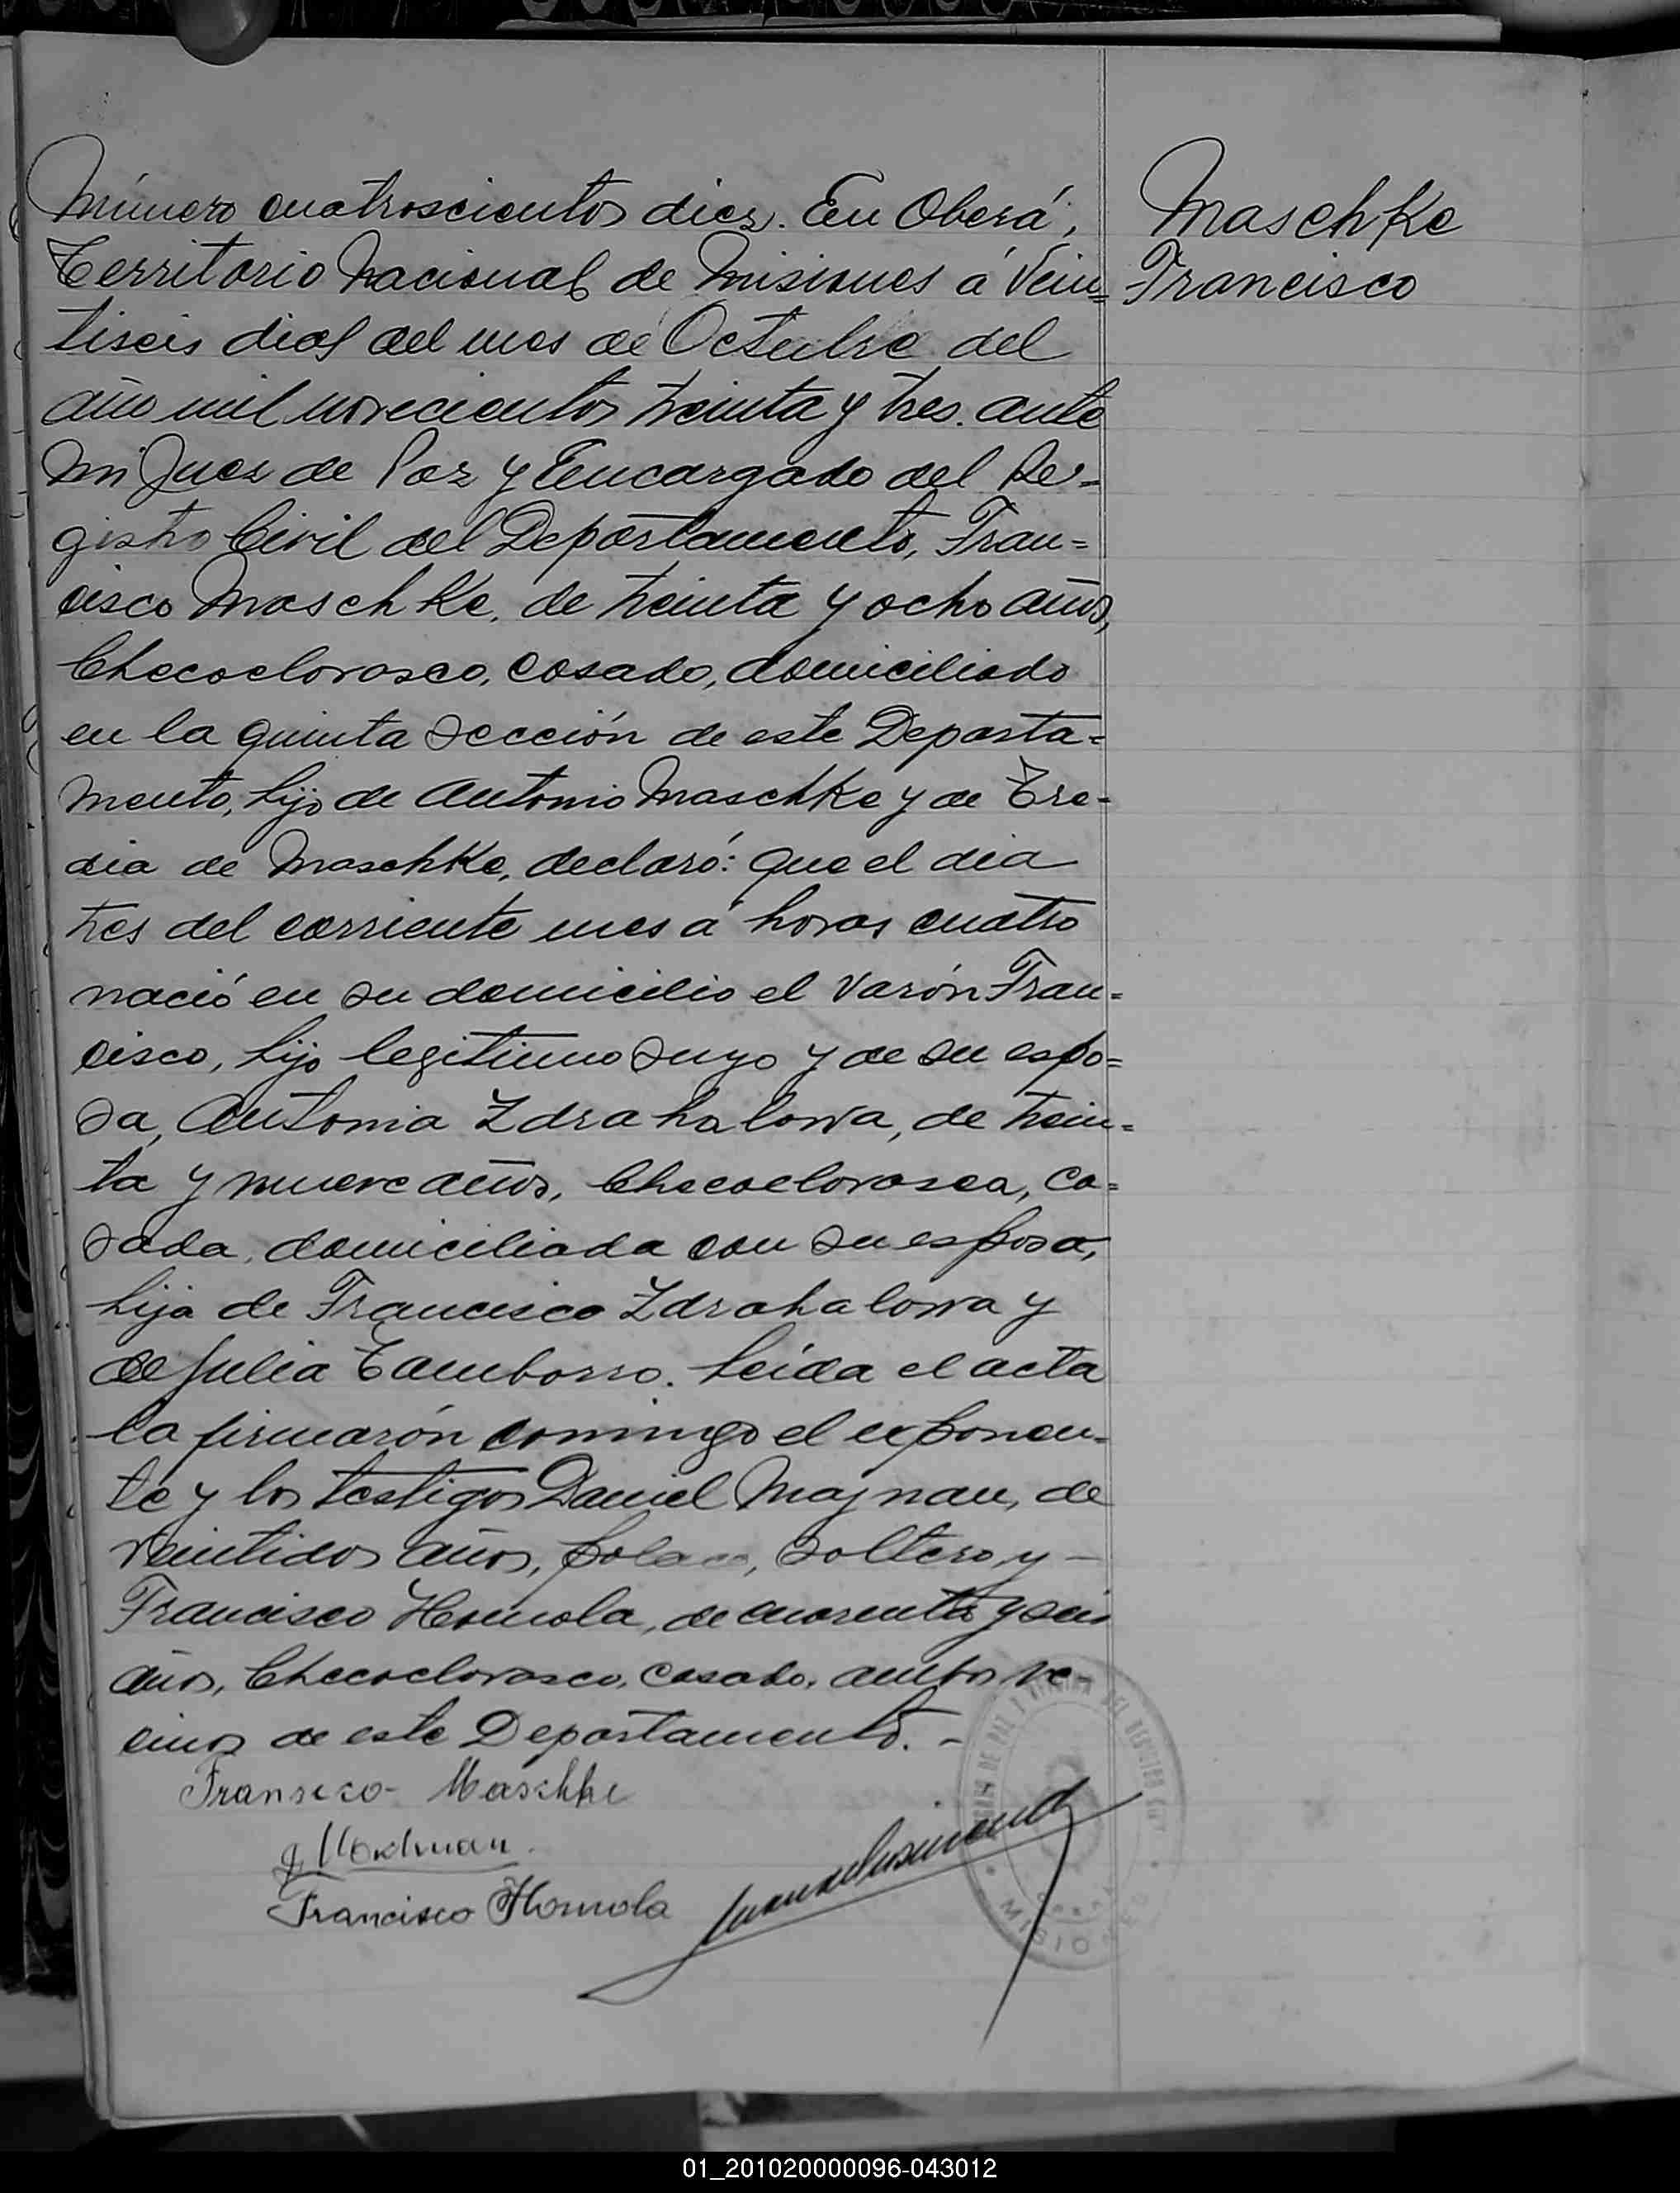 Número cuatroscientos diez. En Oberá,
Territorio Nacional de Misiones á vein=
tiseis dias del mes de Octubre del
año mil novecientos treinta y tres. ante
mi Juez de Paz y Encargado del Re=
gistro Civil del Departamento, Fran=
cisco Maschke, de treinta y ocho años,
Checoeslovasco, casado, domiciliado
en la quinta Sección de este Departa=
mento, hijo de Antonio Maschke y de Tre-
sia de Maschke, declaró: que el dia
tres del corriente mes á horas cuatro
nació en su domicilio el varón Fran=
cisco, hijo legitimo suyo y de su espo=
sa, Antonia Zdrahalowa, de trein=
ta y nueve años, Checoeslovasca, ca=
sada, domiciliada con su esposo,
hija de Francisco Zdrahalowa y
de Julia Tamborro. Leida el acta
la firmarón conmigo el exponen=
te y los testigos Daniel Majnan, de
veintidos años, polaco, soltero y -
Francisco Homola, de cuarenta y seis
años, Checoeslovasco, casado, ambos ve-
cinos de este Departamento. -
Maschke
Francisco
Fransizco - Maschke
Francisco Homola
MISIONES
01_201020000096-043012